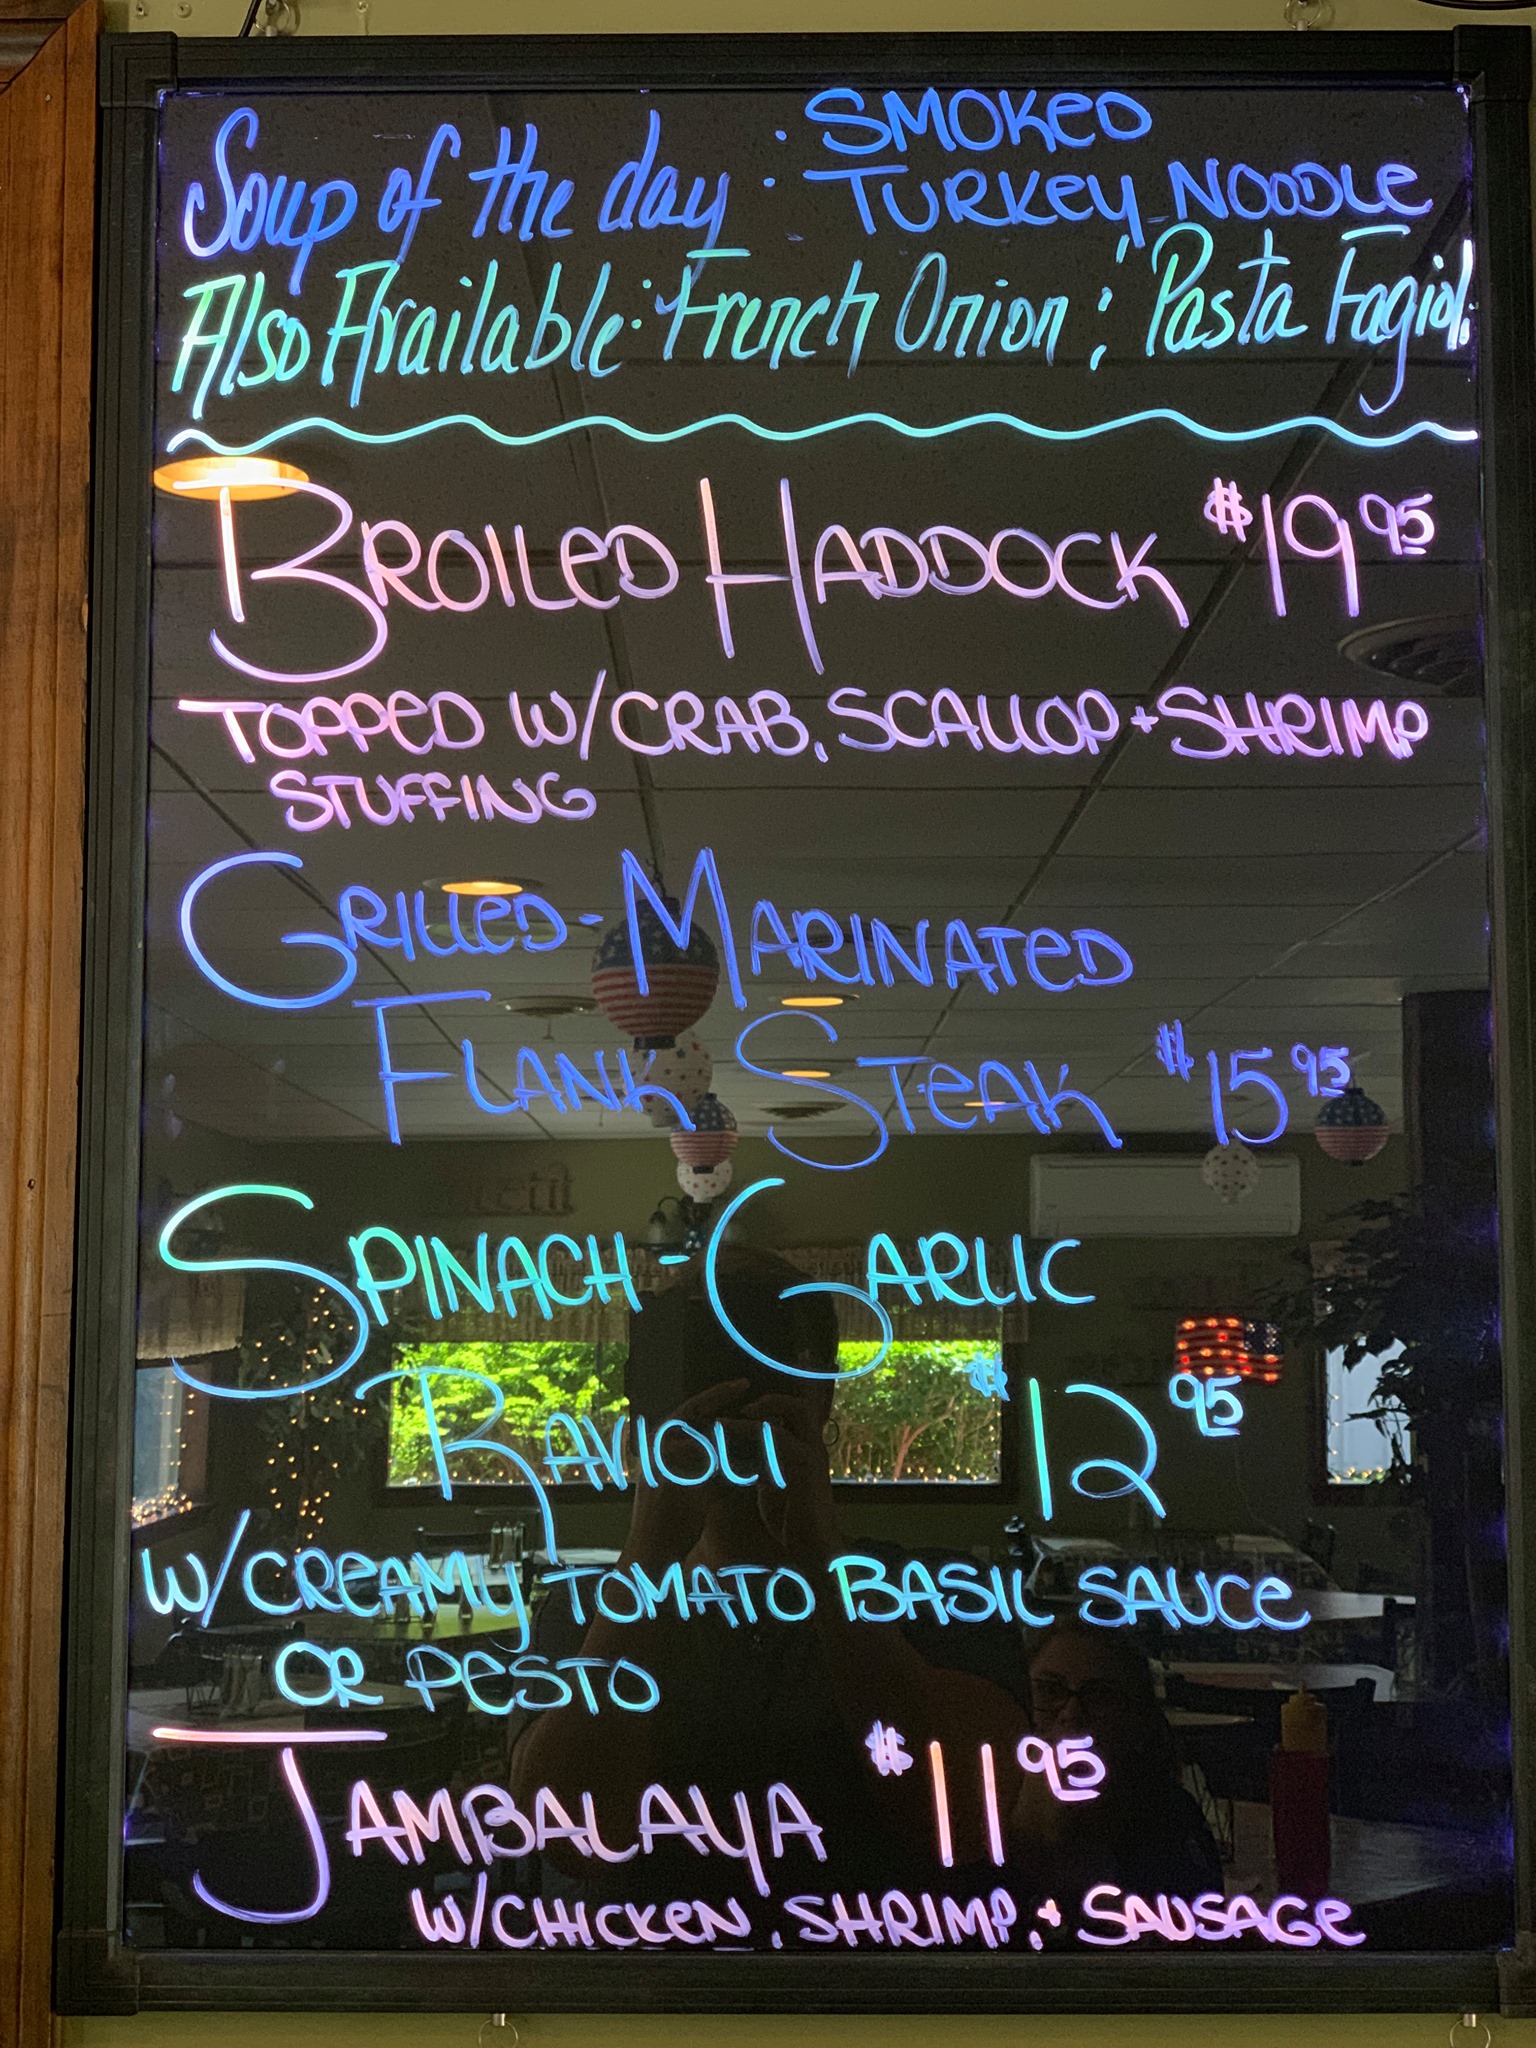 Soup of the day: SMOKED
TURKEY NOODLE
Also Available: French Onion ; Pasta Fagioli
BROILED HADDOCK $19 95
TOPPED W/CRAB, SCALLOP + SHRIMP
STUFFING
GRILLED-MARINATED
FLANK STEAK $15 95
SPINACH-GARLIC
RAVIOLI $12 95
W/CREAMY TOMATO BASIL SAUCE
OR PESTO
JAMBALAYA $11 95
W/CHICKEN, SHRIMP, + SAUSAGE